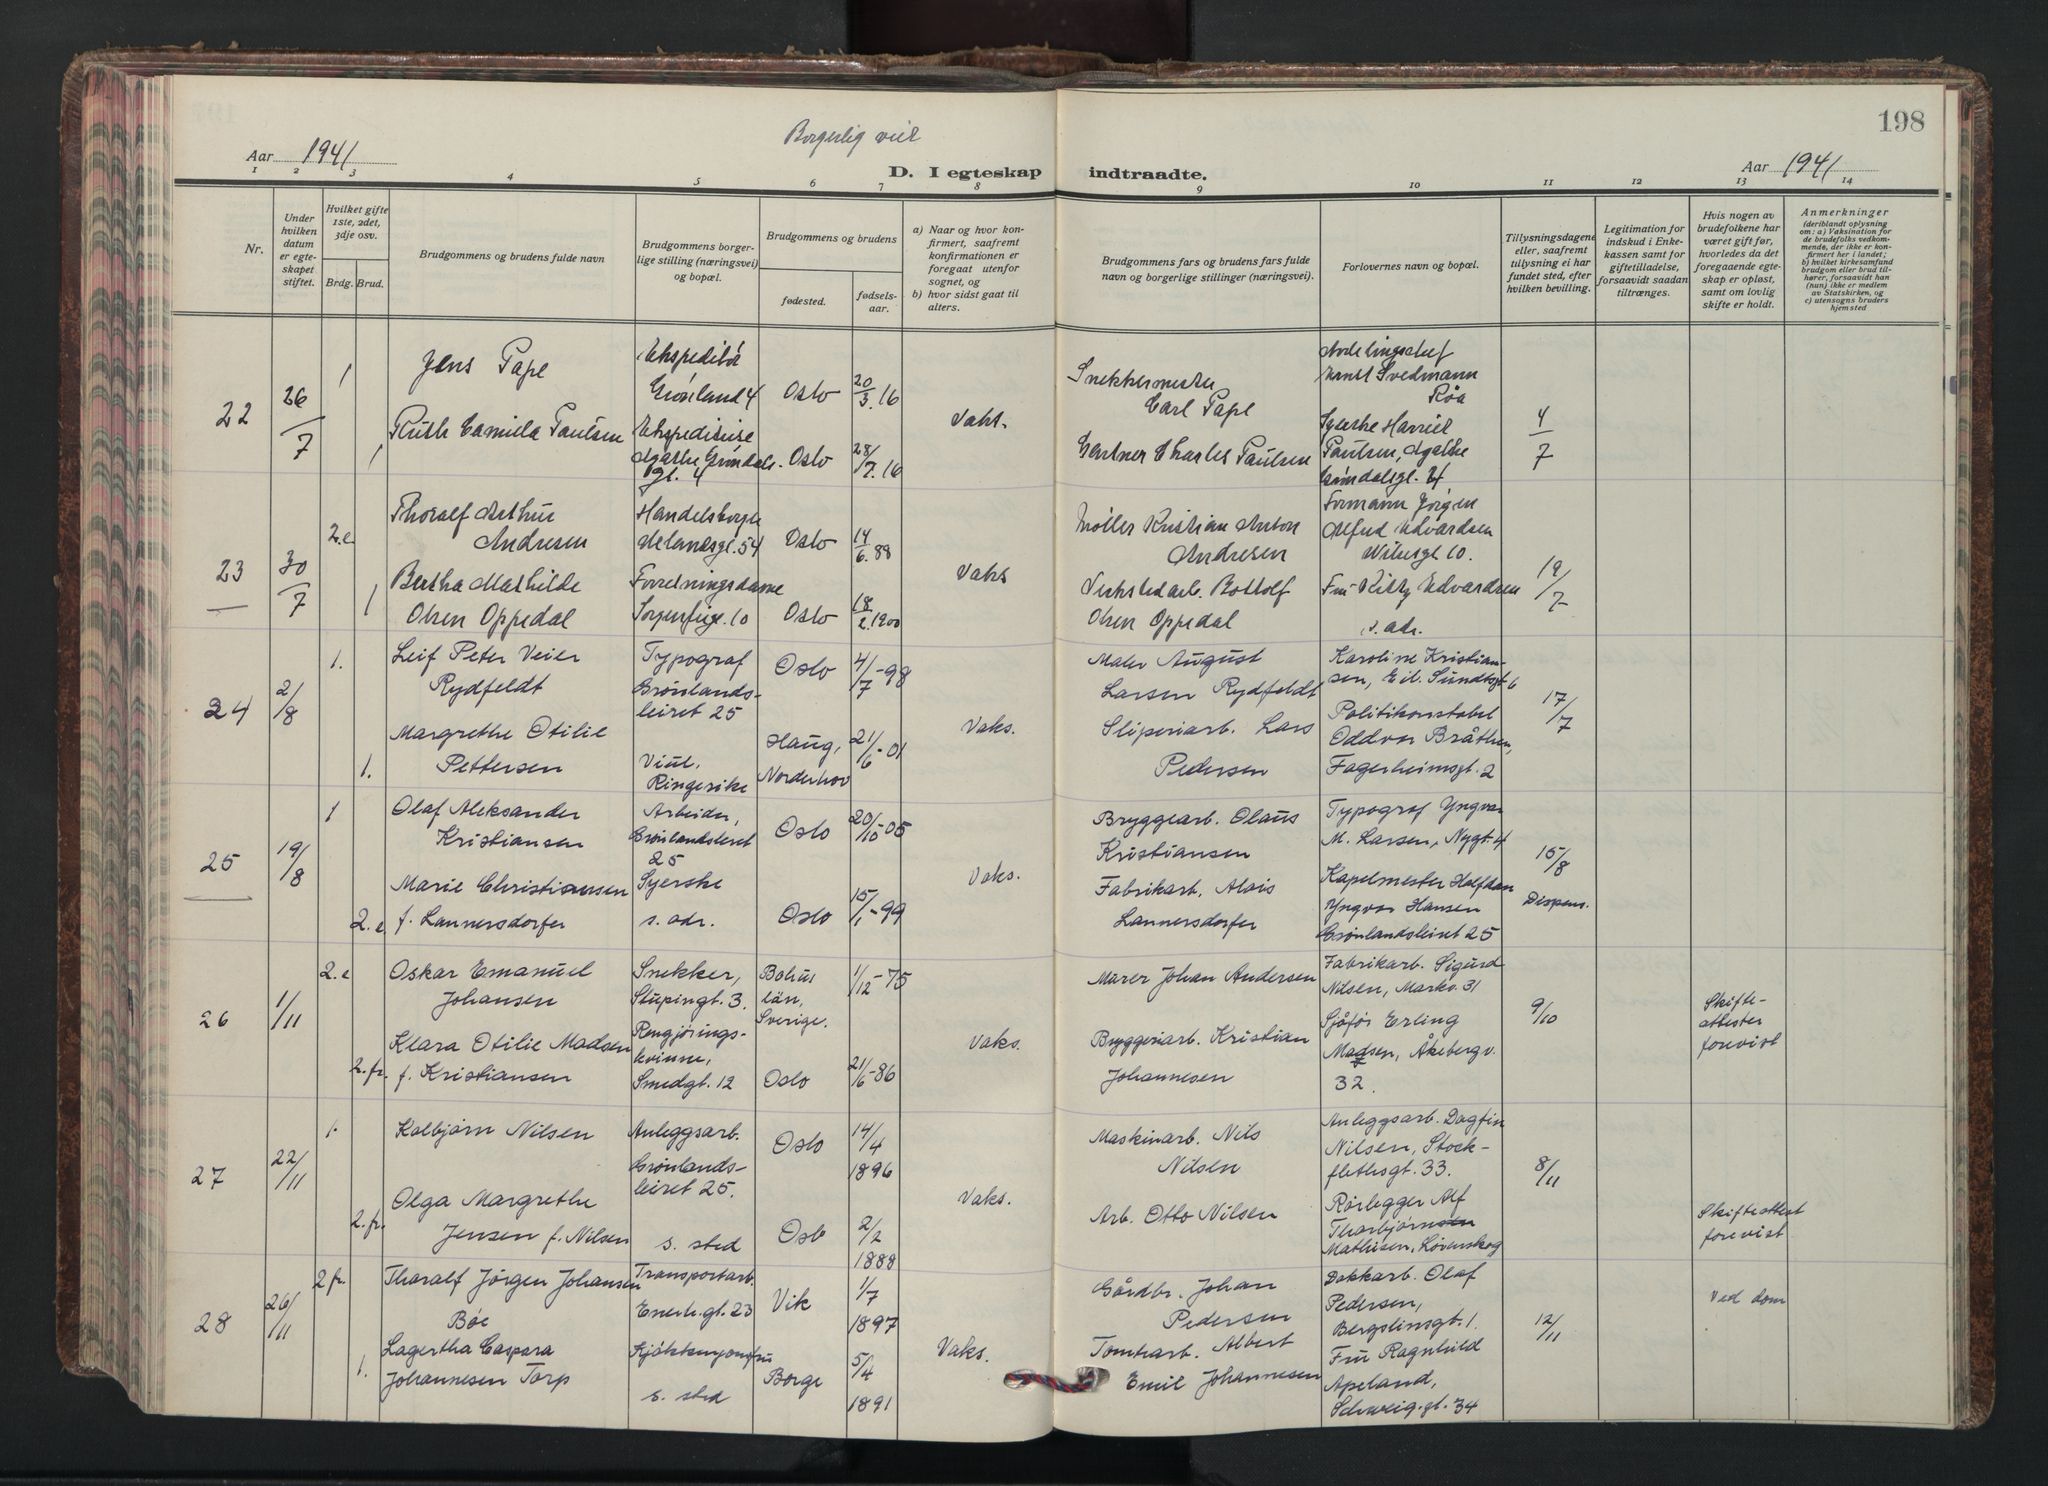 198
Borgerlig viet
Aar 1941
D. I egteskap indtraadte.
Aar 1941
1 2 3 4 5 6 7 8 9 10 11 12 13 14
Nr.
Under hvilken datum er egteskapet stiftet.
Hvilket gifte 1ste, 2det, 3dje osv.
Brdg. Brud.
Brudgommens og brudens fulde navn
Brudgommens borgerlige stilling (næringsvei) og bopæl.
Brudgommens og brudens
fødested.
fødselsaar.
a) Naar og hvor konfirmert, saafremt konfirmationen er foregaat utenfor sognet, og
b) hvor sidst gaat til alters.
Brudgommens fars og brudens fars fulde navn og borgerlige stillinger (næringsvei).
Forlovernes navn og bopæl.
Tillysningsdagene eller, saafremt tillysning ei har fundet sted, efter hvilken bevilling.
Legitimation for indskud i Enkekassen samt for giftetilladelse, forsaavidt saadan tiltrænges.
Hvis nogen av brudefolkene har været gift før, hvorledes da det foregaaende egteskap er opløst, samt om lovlig skifte er holdt.
Anmerkninger
(deriblandt oplysning om: a) Vaksination for de brudefolks vedkommende, der ikke er konfirmert her i landet; b) hvilket kirkesamfund brudgom eller brud tilhører, forsaavidt han (hun) ikke er medlem av Statskirken, og c) utensogns bruders hjemsted
22
26/7
1
Jens Pape
Ekspeditør
Grønland 4
Oslo
20/3.16
Snekkermester
Carl Pape
Avdelingschef
Ernst Svedmann
Røa
Vaks.
4/7
1
Ruth Camilla Paulsen
Ekspeditrise
Agathe Grøndals
gt. 4
Oslo
28/7.16
Gartner Charles Paulsen
Syerske Harriet
Paulsen, Agathe
Grøndalsgt. 4
23
30/7
2.e.
Thoralf Arthur
Andresen
Handelsborger
Helandsgt. 54
Oslo
14/6.88
Møller Kristian Anton
Andresen
Formann Jørgen
Alfred Edvardsen
Wibesgt 10.
Vaks
19/7
1
Bertha Mathilde
Olsen Oppedal
Forretningsdame
Sorgenfrigt. 10
Oslo
18/2.1900
Verkstedarb. Bottolf
Olsen Oppedal
Fru Kitty Edvardsen
s. adr.
24
2/8
1.
Leif Peter Veier
Rydfeldt
Typograf
Grønlands-
leiret 25
Oslo
4/7-98
Maler August
Larsen Rydfeldt
Karoline Kristian-
sen, Eil. Sundtsgt 6
Vaks.
17/7
1.
Margrethe Otilie
Pettersen
Viul,
Ringerike
Haug,
Norderhov
21/6-01
Sliperiarb. Lars
Pedersen
Politikonstabel
Oddvar Bråthen,
Fagerheimsgt. 2
25
19/8
1
Olaf Aleksander
Kristiansen
Arbeider,
Grønlandsleret
25
Oslo
20/10-05
Bryggearb. Olaus
Kristiansen
Typograf Yngvar
M. Larsen, Nygt. 4
Vaks.
15/8
Dispens.
2.e
Marie Christiansen
f. Lannersdorfer
Syerske
s. adr.
Oslo
15/1-99
Fabrikarb. Alois
Lannersdorfer
Kapelmester Halfdan
Yngvar Hansen
Grønlandsleiret 25
26
1/11
2.e
Oskar Emanuel
Johansen
Snekker,
Stupingt. 3.
Bohus
län,
Sverige.
1/12-75
Murer Johan Andersen
Fabrikarb. Sigurd
Nilsen, Markv. 31
Vaks.
9/10
Skifte-
attester
forevist
2.fr.
Klara Otilie Madsen
f. Kristiansen
Rengjørings-
kvinne,
Smedgt. 12
Oslo
21/6-86
Bryggeriarb. Kristian
Johannesen
Sjåfør Erling
Madsen, Åkebergv.
32.
27
22/11
1.
Kolbjørn Nilsen
Anleggsarb.
Grønlands-
leiret 25.
Oslo
14/4
1896
Maskinarb. Nils
Nilsen
Anleggsarb. Dagfin
Nilsen, Stock-
flethsgt. 33.
Vaks.
8/11
2.fr.
Olga Margrethe
Jensen f. Nilsen
s. sted
Oslo
2/2
1888
Arb. Otto Nilsen
Rørlegger Alf
Thorbjørnsen
Mathisen, Lørenskog
Skifteattest
forevist
28
26/11
2 fr.
Tharalf Jørgen Johansen
Bøe
Transportarb.
Enerh.gt. 23
Vik
1/7
1897
Gårdbr. Johan
Pedersen
Dokkarb. Olaf
Pedersen,
Bergslinsgt. 1.
Vaks.
12/11
Ved dom
1.
Lagertha Caspara
Johannesen Torp
Kjøkkenjomfru
s. sted
Borge
5/4
1891
Tomtearb. Albert
Emil Johannesen
Fru Ragnhild
Apeland,
Schweig.gt. 34